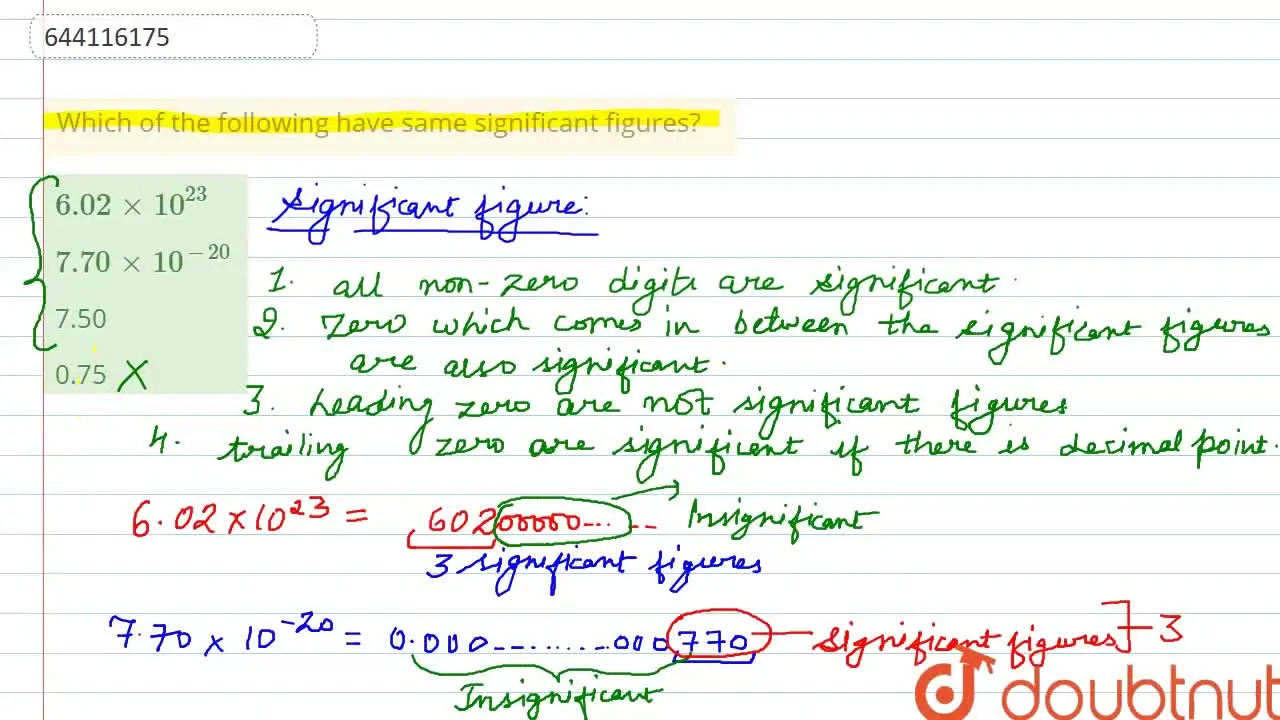 644116175
Which of the following have same significant figures?
6.02 × 10²³
7.70 × 10⁻²⁰
7.50
0.75 ×
Significant figure:
1. all non-zero digits are significant.
2. Zero which comes in between the significant figures
are also significant.
3. Leading zero are not significant figures
4. trailing zero are significant if there is decimal point.
6.02 × 10²³ = 60200000...... Insignificant
3 significant figures
7.70 × 10⁻²⁰ = 0.000..........000770 significant figures 3
Insignificant
doubtnut